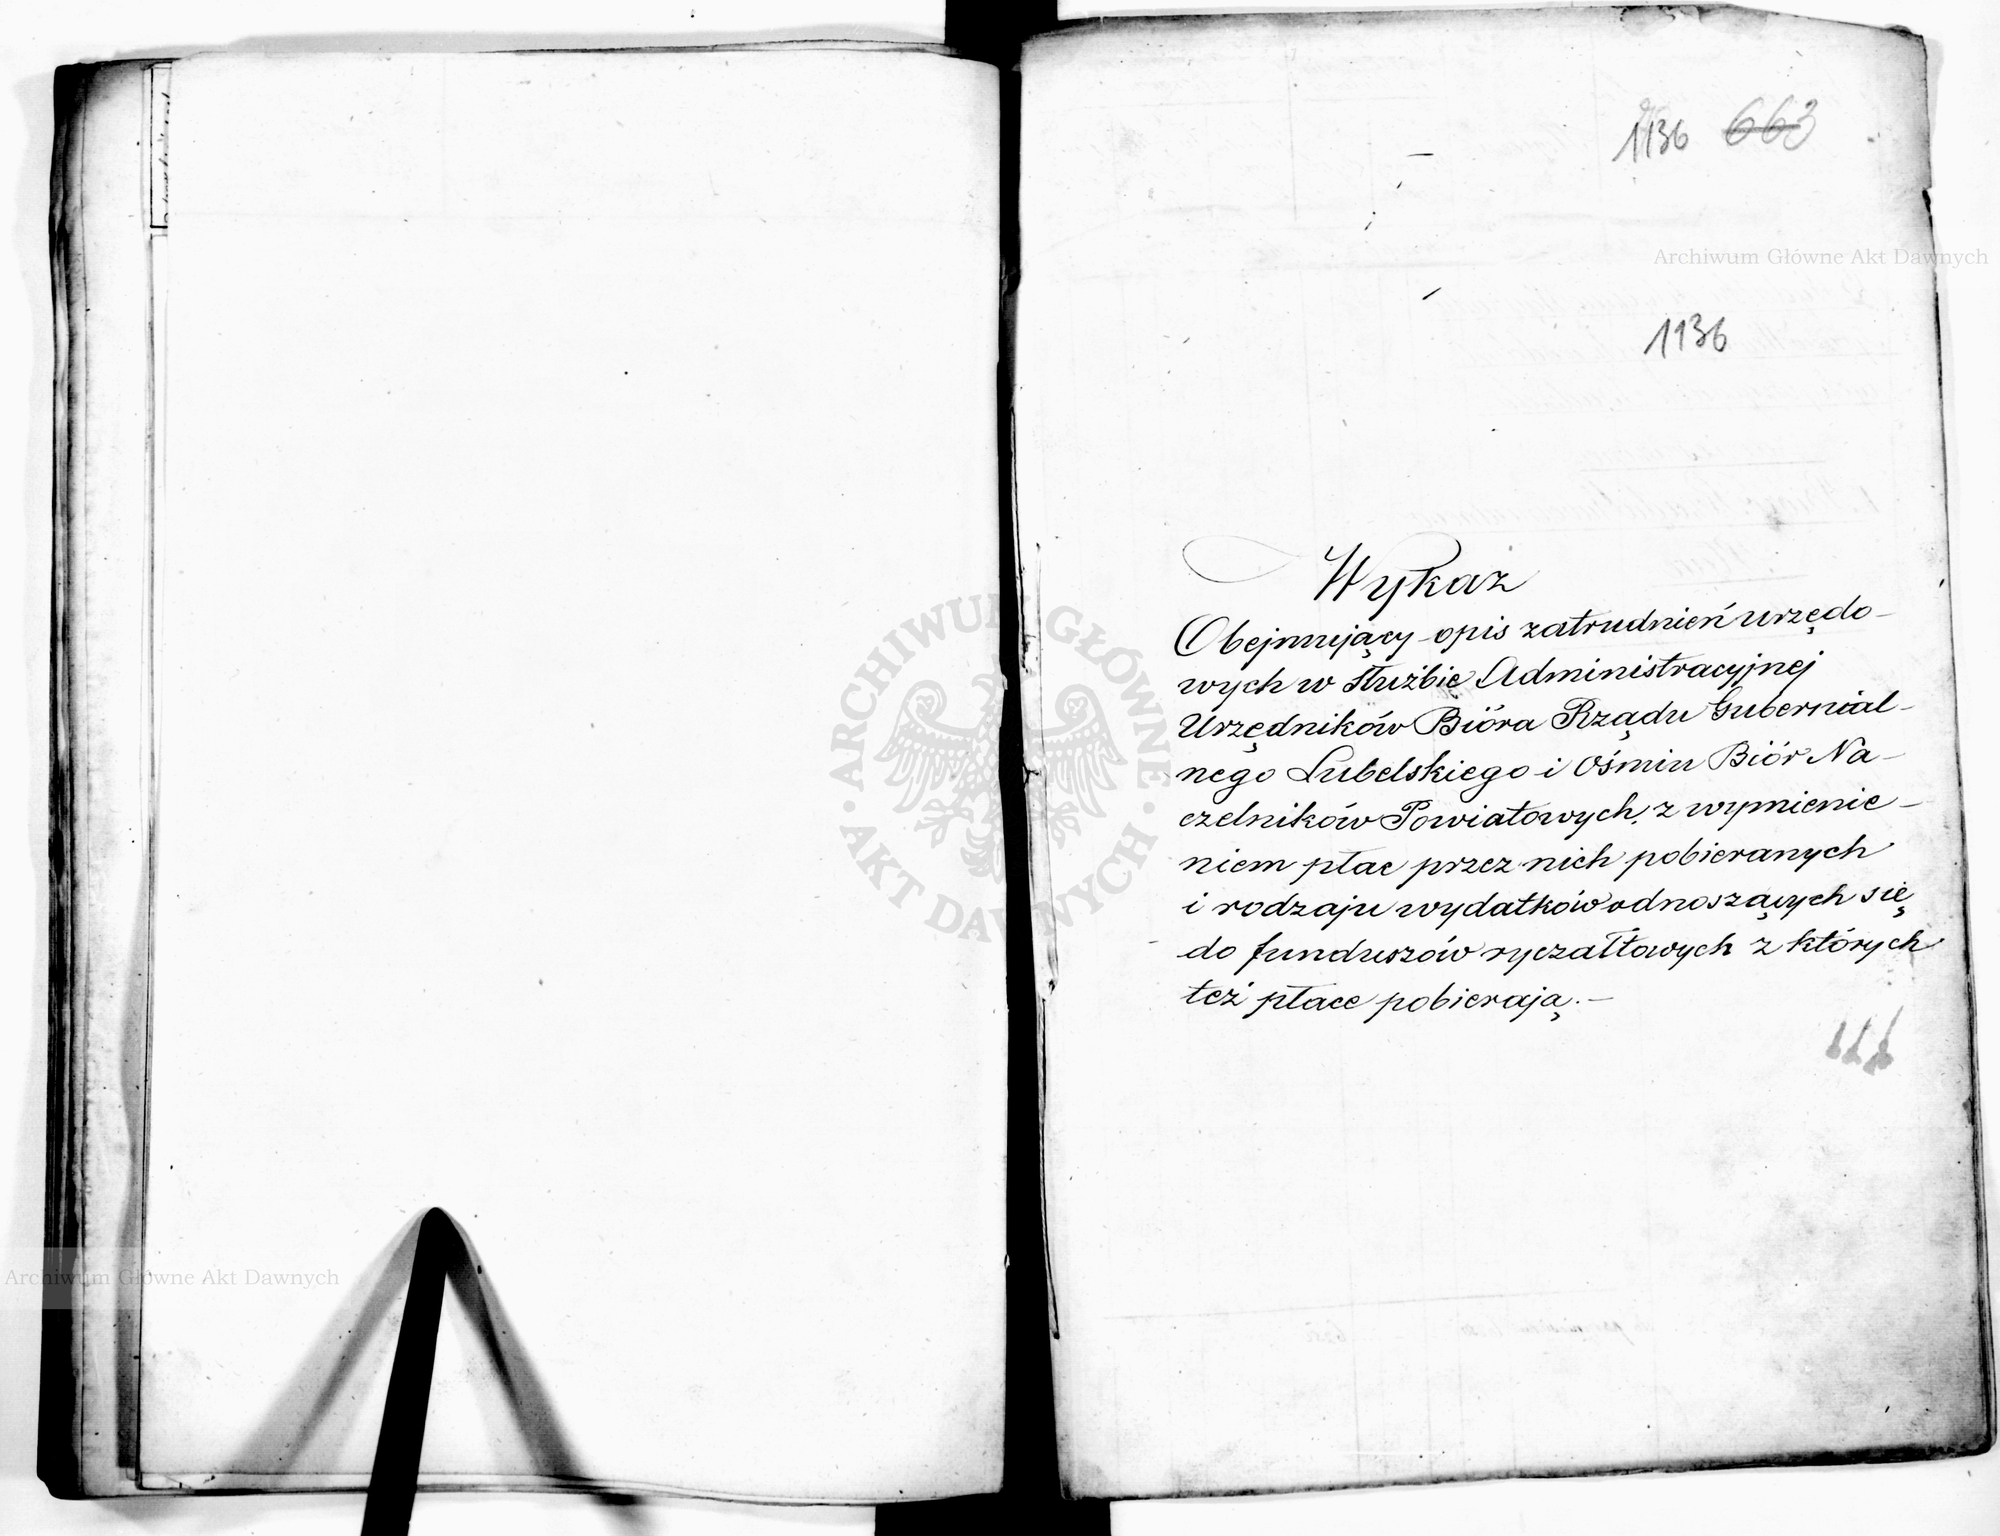 1136 663
Archiwum Główne Akt Dawnych
1136
Wykaz
Obejmujący opis zatrudnień urzędo-
wych w służbie Administracyjnej
Urzędników Bióra Rządu Gubernial-
nego Lubelskiego i Ośmiu Biór Na-
czelników Powiatowych, z wymienie-
niem płac przez nich pobieranych
i rodzaju wydatków odnoszących się
do funduszów ryczałtowych z których
też płace pobierają.-
ARCHIWUM GŁÓWNE
AKT DAWNYCH
Archiwum Główne Akt Dawnych